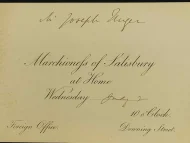 Joseph
Marchioness of Salisbury
at Home
Wednesday
10 o'Clock.
Foreign Office
Downing Street.